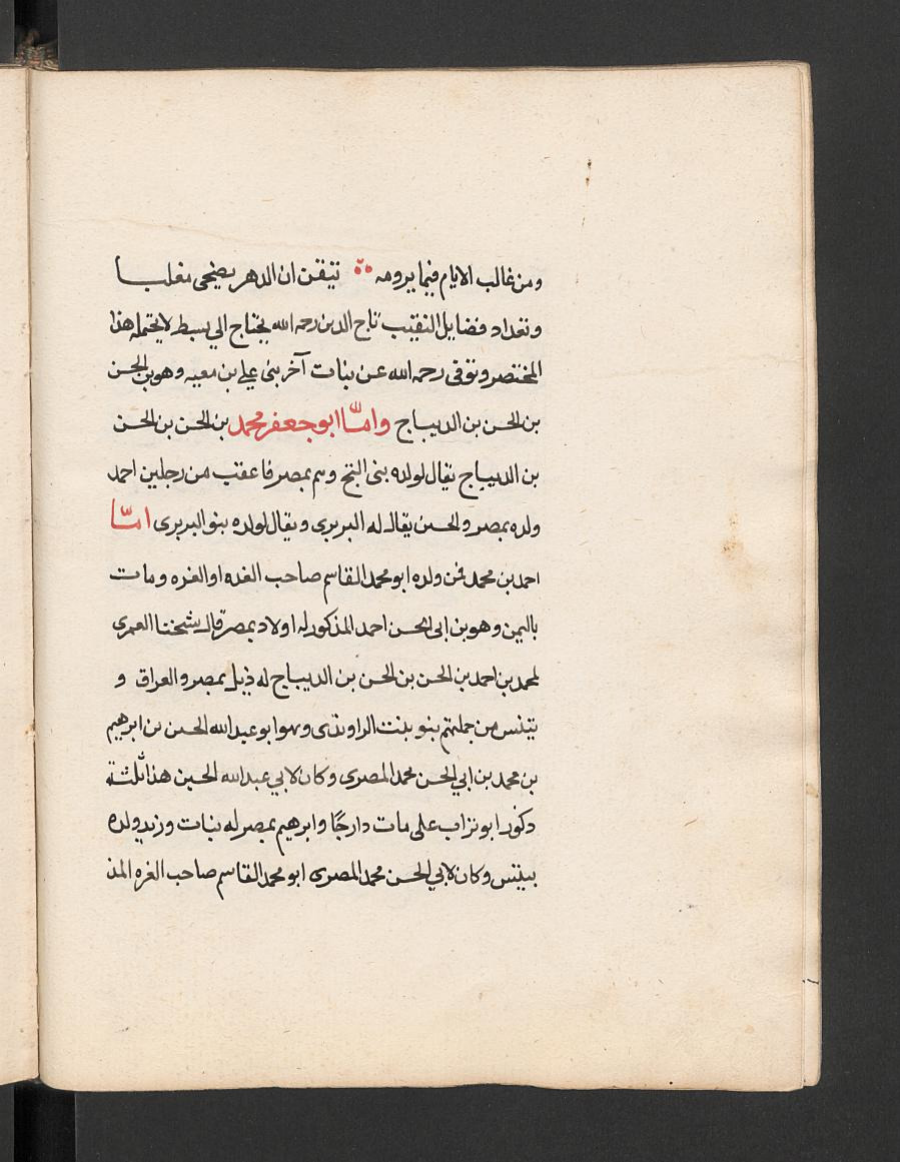 ومن غالب الايام فيما يرومه تيقن ان الدهر يضحى مغلبا
وتعداد فضايل النقيب تاج الدين رحمه الله يحتاج الي بسط لا يحتمله هذا
المختصر وتوفى رحمه الله عن بنات آخر بنى علي بن معيه وهو بن الحسن
بن الحسن بن الديباج واما ابو جعفر محمد بن الحسن بن الحسن
بن الديباج يقال لولده بنى التج وهم بمصر فاعقب من رجلين احمد
ولده بمصر والحسن يقال له البربرى ويقال لولده بنو البربرى اما
احمد بن محمد فمن ولده ابو محمد القاسم صاحب الغده او الغره ومات
باليمن وهو بن ابى الحسن احمد المذكور له اولاد بمصر قال شيخنا العمرى
لمحمد بن احمد بن الحسن بن الحسن بن الديباج له ذيل بمصر والعراق و
بتنس من جملتهم بنو بنت الراوندى وهو ابو عبد الله الحسن بن ابرهيم
بن محمد بن ابي الحسن محمد المصرى وكان لابي عبد الله الحسين هذا ثلثة
ذكور ابو تراب على مات دارجًا وابرهيم بمصر له بنات وزيد ولده
بتنس وكان لابي الحسن محمد المصرى ابو محمد القاسم صاحب الغره المذ